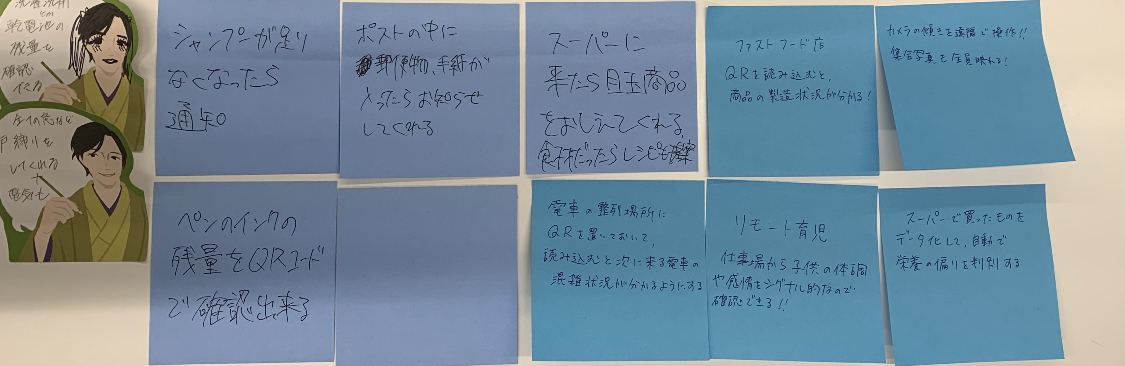 乾電池の
残量を
確認
戸締りを
してくれる
+
電気も
シャンプーが足り
なくなったら
通知
ポストの中に
郵便物、手紙が
入ったらお知らせ
してくれる
スーパーに
来たら目玉商品
をおしえてくれる。
食材だったらレシピも
ファストフード店
QRを読み込むと、
商品の製造状況が分かる!
カメラの傾きを遠隔で操作!!
集合写真を全員映れる!
ペンのインクの
残量をQRコード
で確認出来る
電車の整列場所に
QRを置いておいて、
読み込むと次に来る電車の
混雑状況が分かるようにする
リモート育児
仕事場から子供の体調
や感情をシグナル的なので
確認できる!!
スーパーで買ったものを
データ化して、自動で
栄養の偏りを判別する